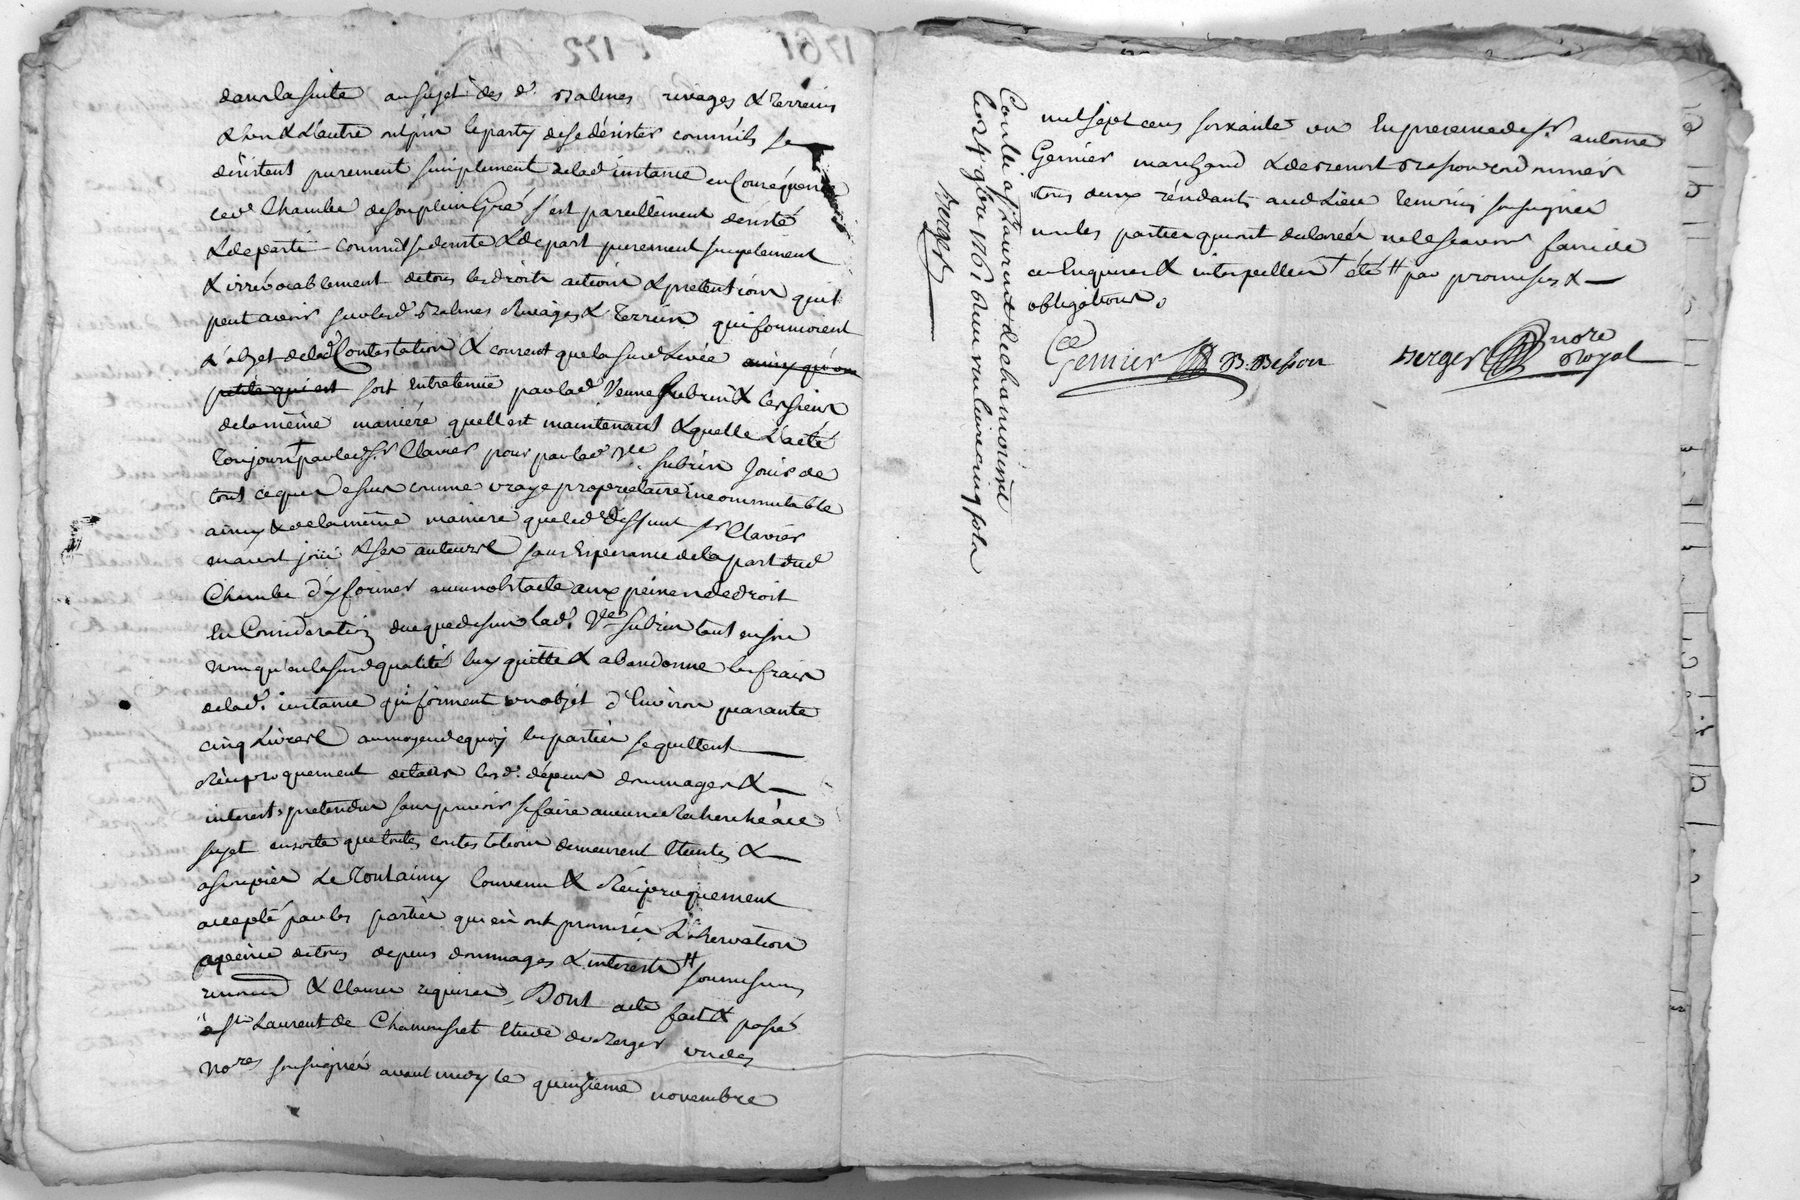 dans la suite au sujet des d. Balmes rivages & terrein
& l'un & l'autre ont pris le party de se désister comme ils se
désistent purement simplement de lad instance en conséquence
led. Chambe de son plein Gré s'est pareillement désisté
& départi comme il se desiste & depart purement simplement
& irrévocablement de tous les droits actions & pretentions quil
peut avoir sur les d. Balmes Rivages & Terrein qui formoient
l'objet de lad Contestation & consent que la susd Levée
soit entretenuë par lad. Veuve Subrin & les siens
de la même maniére quell est maintenant & quelle l'a été
toujours par led Sr Clavier pour par lad. Ve. Subrin Jouir de
tout ce que dessus comme vraye proprietaire incommutable
ainsy & de la même maniere que led. deffunt Sr Clavier
en avoit joüi & ses auteurs sans Esperance de la part dud
Chambe d'y former aucun obstacle aux peines de droit
En Consideration de ce que dessus lad. Ve Subrin tant en son
nom qu'en la susd qualité luy quitte & abandonne les frais
de lad. instance qui forment un objet d'Environ quarante
cinq Livres & au moyen de quoy les parties se quittent
Réciproquement de tous les d. dépens dommages &
interests pretendus sans pouvoir se faire aucune Recherche à ce
sujet en sorte que toutes contestations demeurent Eteintes &
assoupies Le Tout ainsy Convenu & Réciproquement
accepté par les parties qui en ont promis l'observation
a peine de tous depens dommages & interests soumissions
renon & clauses requises, Dont acte fait & passé
à St Laurent de Chamousset Etude de Berger un des
Nores soussignés avant midy le quinzieme novembre
mil sept cens soixante un En presence de Sr antoine
Gernier marchand & de Benoit Besson cordonnier
tous deux résidants aud Lieu temoins soussignés
non les parties qui ont declaré ne le scavoir faire de
ce Enquises & interpellées par promesses &
obligations.
Gernier B. Besson Berger nore Royal
Con.lé a St Laurent de chamousset
le 24 9bre 1761 Reçu une livre cinq sols
Berger